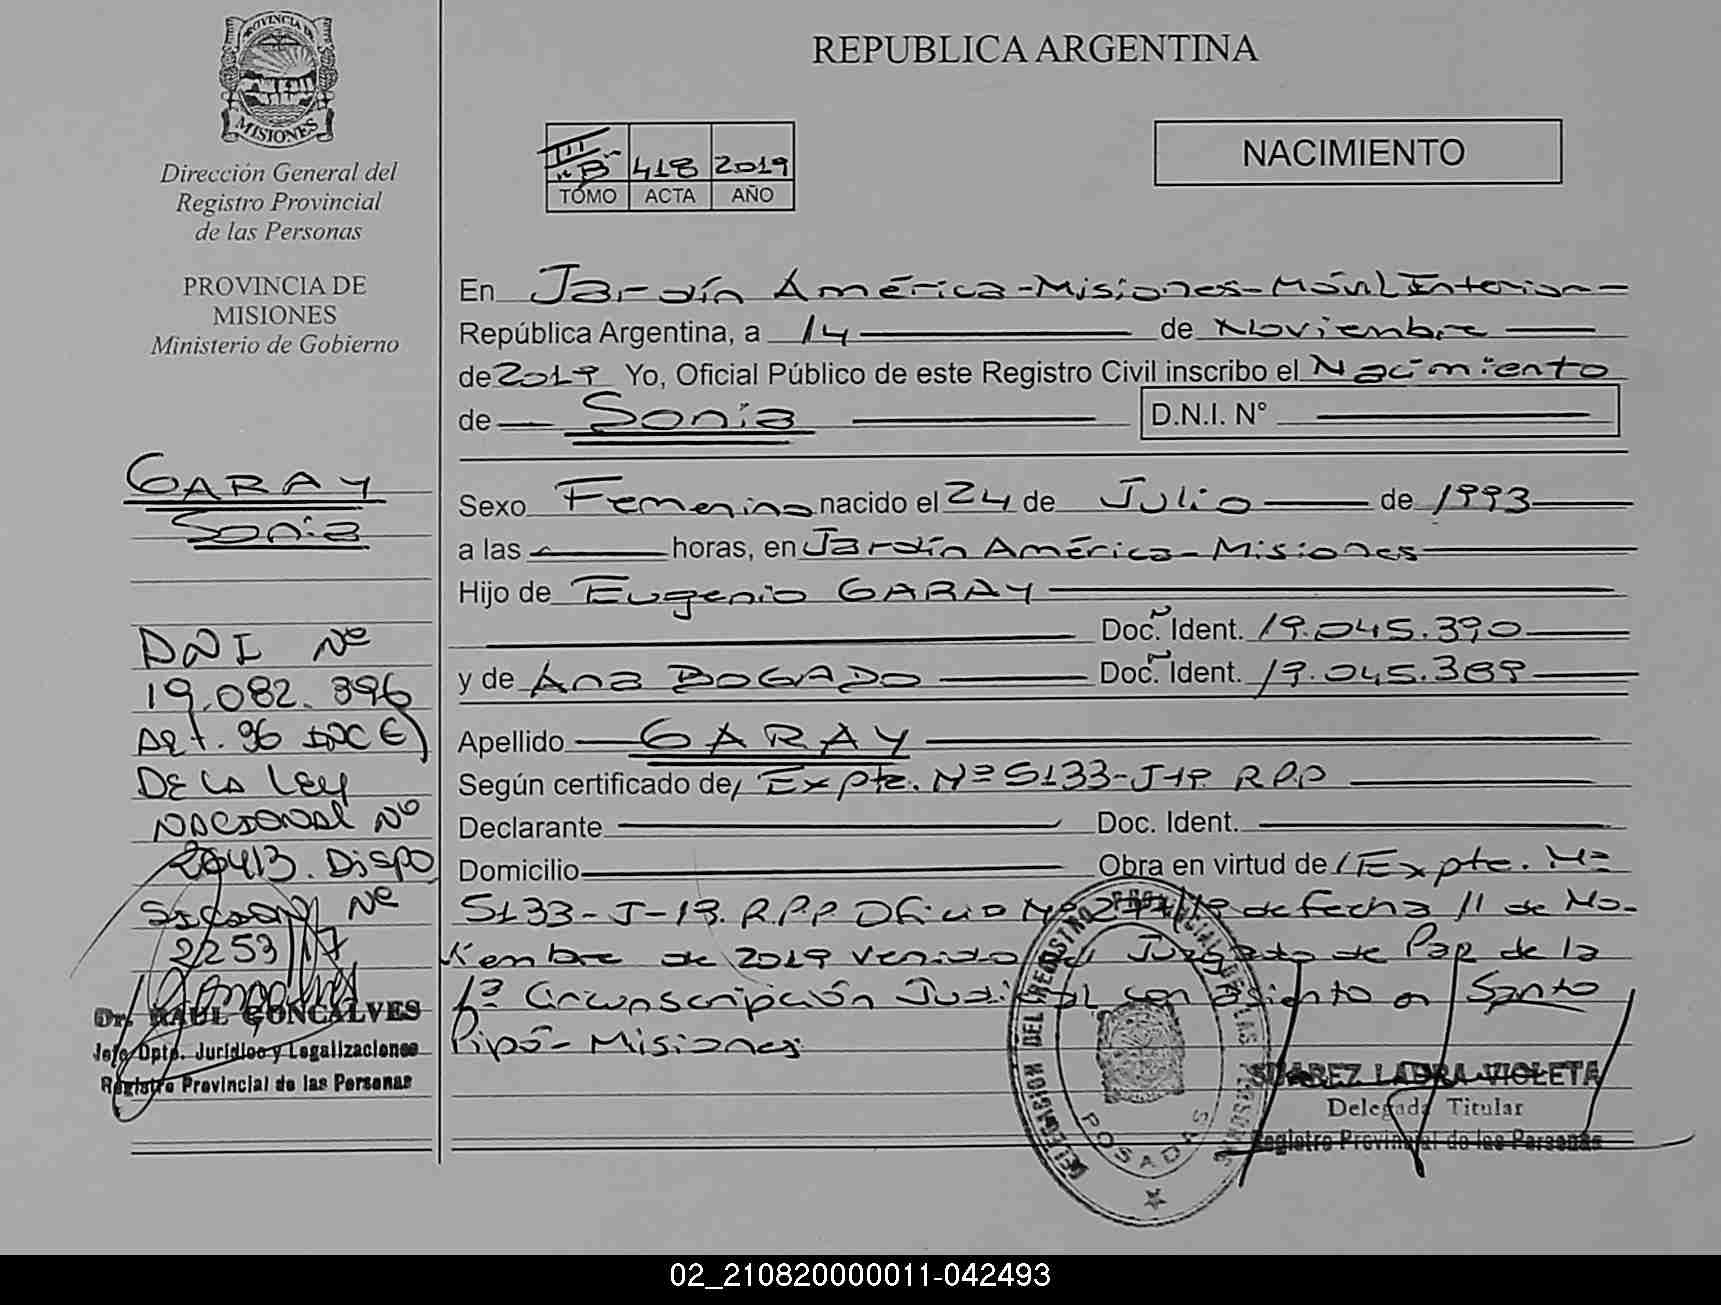 PROVINCIA DE
MISIONES
Dirección General del
Registro Provincial
de las Personas
PROVINCIA DE
MISIONES
Ministerio de Gobierno
GARAY
Sonia
DNI Nº
19.082.896
Art. 96 INC E)
DE LA LEY
NACIONAL Nº
26413. Dispo
SICION Nº
2253/17
Dr. RAUL GONCALVES
Jefe Dpto. Jurídico y Legalizaciones
Registro Provincial de las Personas
REPUBLICA ARGENTINA
III "B" 418 2019
TOMO ACTA AÑO
NACIMIENTO
En Jardín América-Misiones-Móvil Interior-
República Argentina, a 14 de Noviembre
de 2019 Yo, Oficial Público de este Registro Civil inscribo el Nacimiento
de Sonia D.N.I. N°
Sexo Femenino nacido el 24 de Julio de 1993
a las horas, en Jardín América-Misiones
Hijo de Eugenio GARAY
Doc. Ident. 19.045.390
y de Ana BOGADO Doc. Ident. 19.045.389
Apellido GARAY
Según certificado de/ Expte. Nº 5133-J-19 RPP
Declarante Doc. Ident.
Domicilio Obra en virtud de/ Expte. Nº
5133-J-19. R.P.P Oficio Nº de fecha 11 de No-
viembre de 2019 venido del Juzgado de Paz de la
1ª Circunscripción Judicial con asiento en Santo
Pipó- Misiones
DELEGACION DEL REGISTRO PROVINCIAL DE LAS PERSONAS
POSADAS
SUAREZ LAURA VIOLETA
Delegada Titular
Registro Provincial de las Personas
02_210820000011-042493